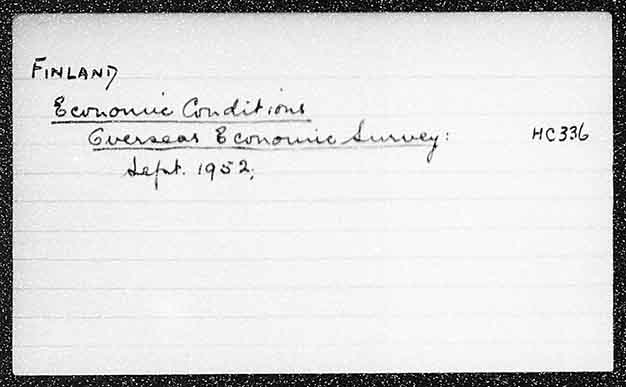 FINLAND
Economic Conditions
Overseas Economic Survey: HC336
Sept. 1952;